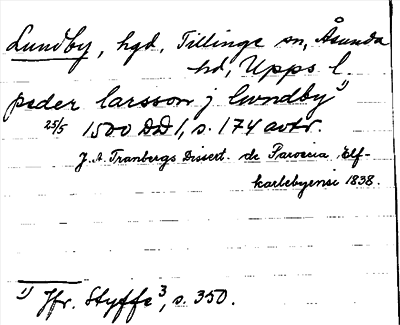 Lundby, hgd, Tillinge sn, Åsunda
hd, Upps l.
peder larsson j lwndby¹⁾
25/5 1500 DD 1, s. 174 avtr.
J. A. Tranbergs Dissert. de Paroecia Elf-
karlebyensi 1838.
¹⁾ Jfr. Styffe³, s. 350.